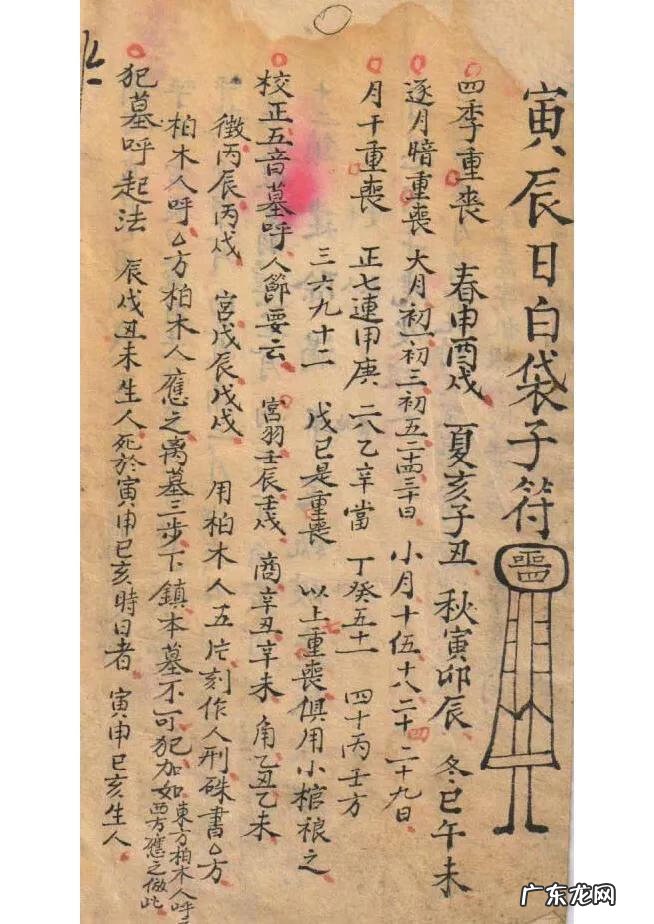 寅辰日白袋子符
四季重喪 春申酉戌 夏亥子丑 秋寅卯辰 冬巳午未
逐月暗重喪 大月初一初三初五二十四三十日 小月十伍十八二十二十九日
月干重喪 正七連甲庚 二八乙辛當 丁癸五十一 四十丙壬方
三六九十二 戊己是重喪 以上重喪俱用小棺 之
校正五音墓呼人節要云 宮羽壬辰壬戌 商辛丑辛未 角乙丑乙未
徵丙辰丙戌 宮戊辰戊戌 用柏木人五片刻作人刑硃書厶方
柏木人呼厶方柏木人應之离墓三步下鎮本墓不可犯加如東方柏木人呼
西方應之倣此
犯墓呼起法 辰戌丑未生人死於寅申巳亥時日者 寅申巳亥生人
广东龙网